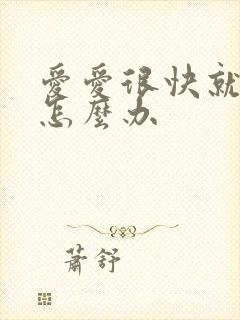 愛愛很快就
怎麼办
蕭舒